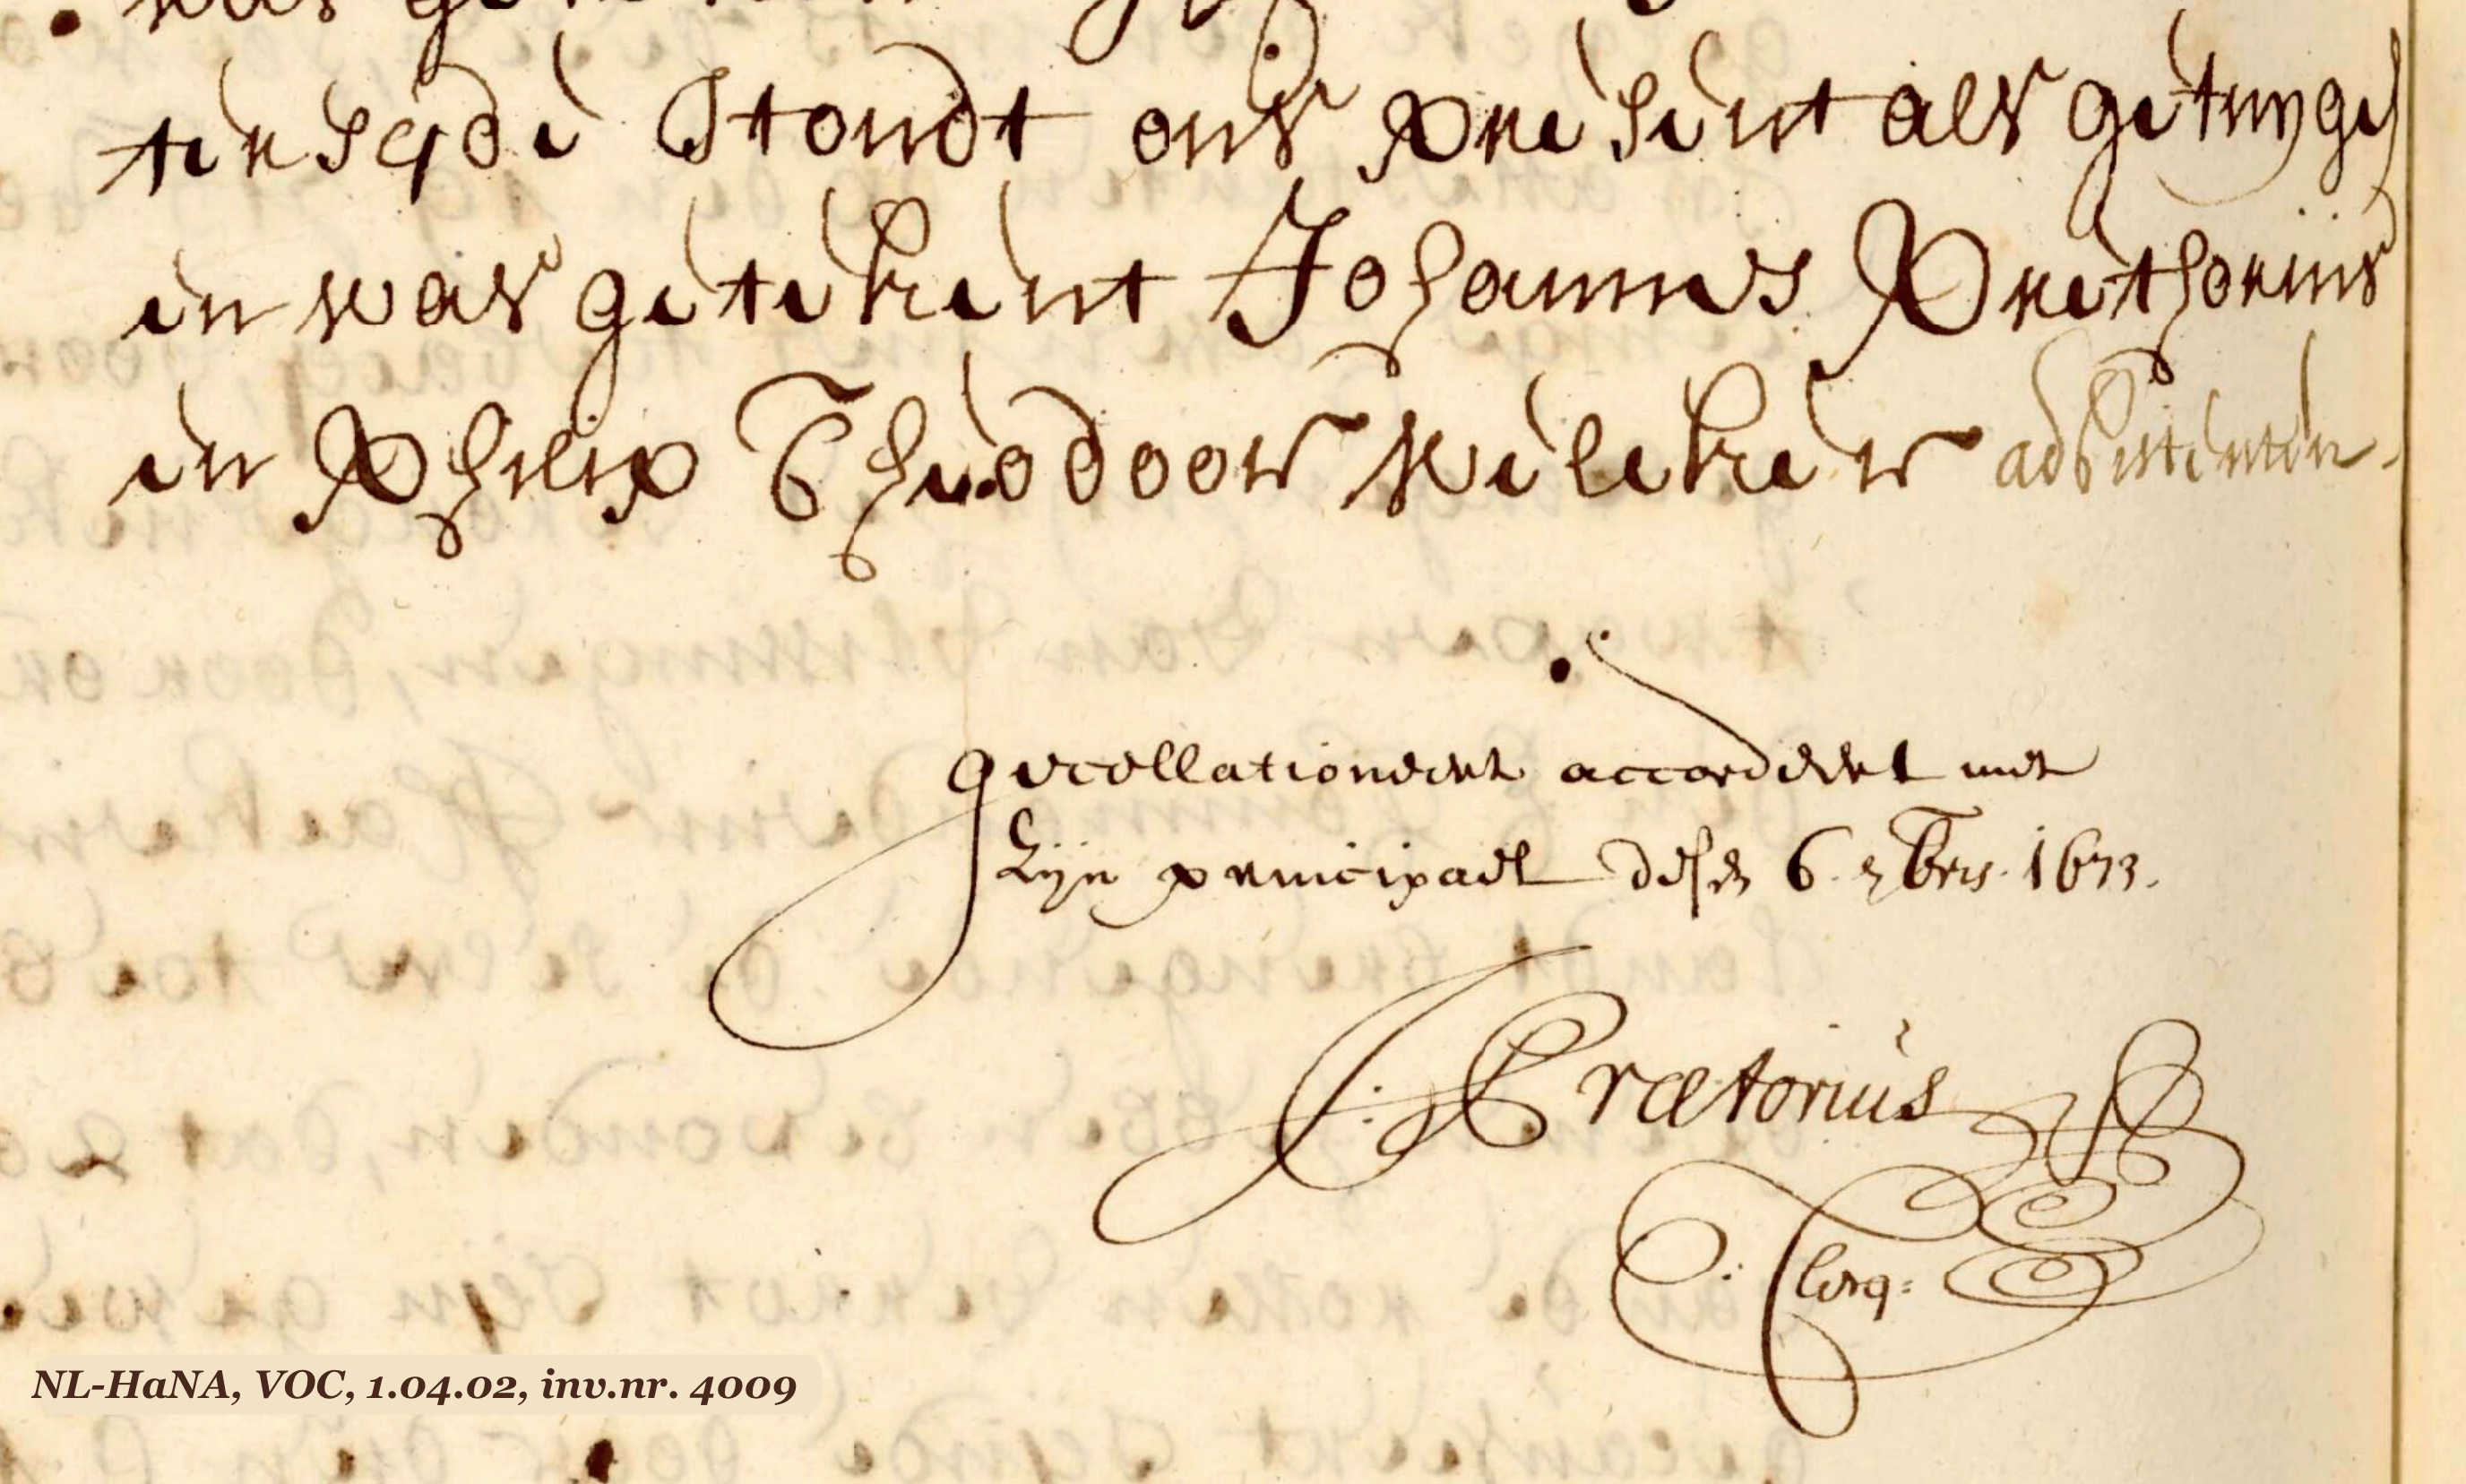 ter sijde Stondt ons present als getuygen
en was geteikent Johannes Prethorius
en Philip Theodoor Welcker adsistenten.
Gecollationeert accordeert met
Zijn principael desen 6. 7bris. 1673.
J: Prætorius
: Clerq:
NL-HaNA, VOC, 1.04.02, inv.nr. 4009